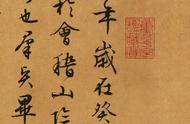 年歲在癸
於會稽山陰
也羣賢畢